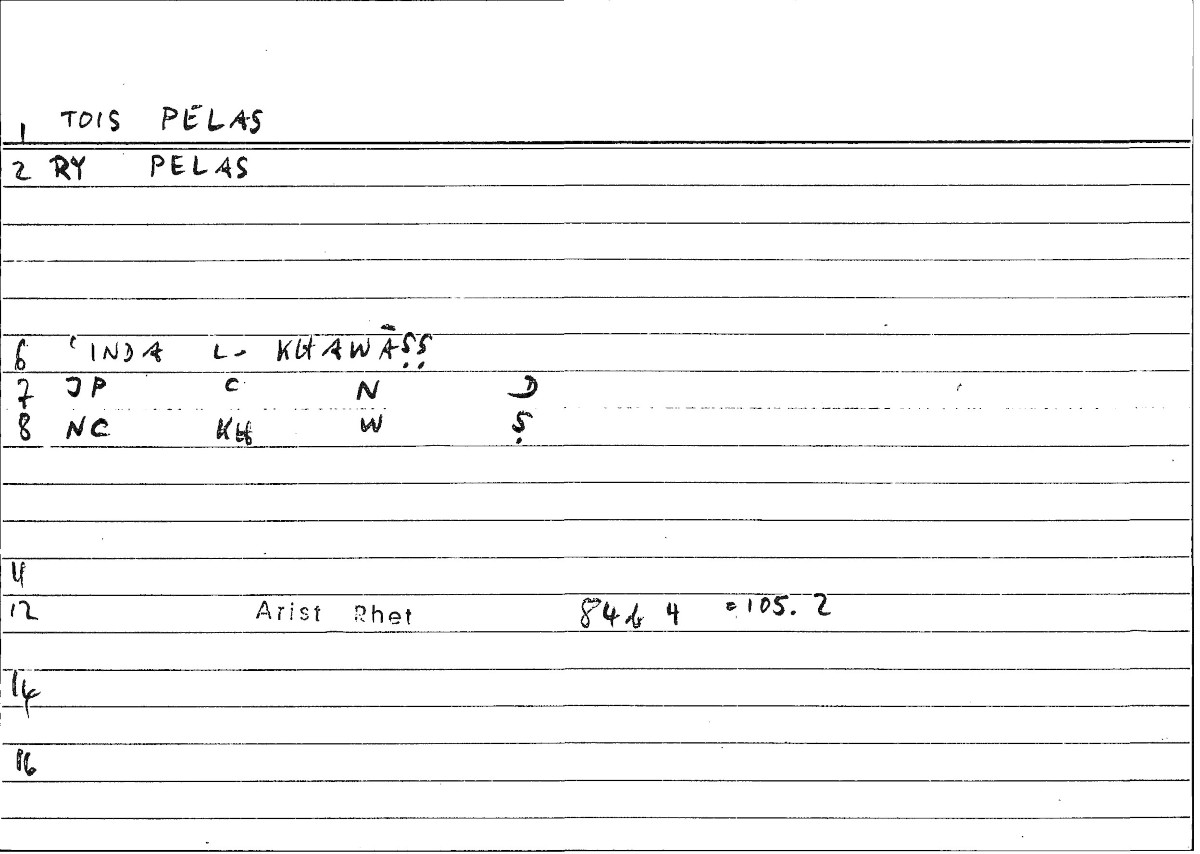 1 TOIS PĒLAS
2 RY PELAS
6 ʿINDA L- KHAWĀṢṢ
7 JP C N D
8 NC KH W Ṣ
11
12 Arist Rhet 84b 4 =105.2
14
16